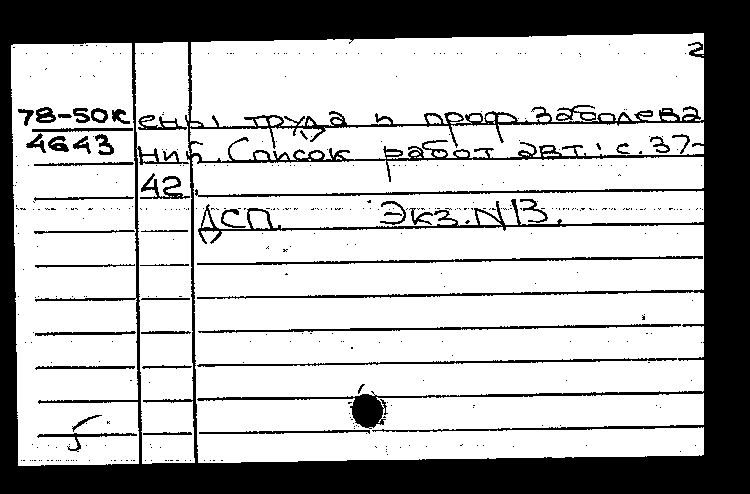 2
78-50к ены труда и проф.заболева
4643 ний. Список работ авт.: с.37-
42.
ДСП. Экз.N13.